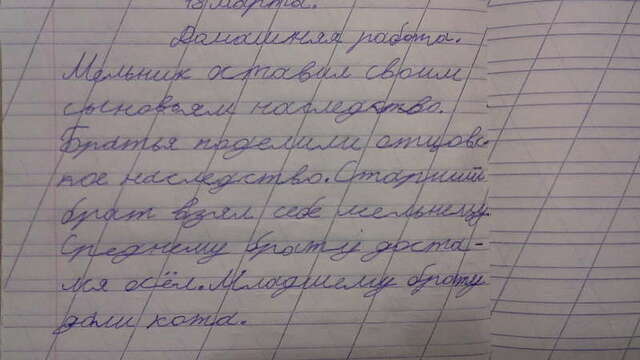 марта.
Домашняя работа.
Мельник оставил своим
сыновьям наследство.
Братья поделили отцовс-
кое наследство. Старший
брат взял себе мельницу.
Среднему брату доста-
лся осёл. Младшему брату
дали кота.